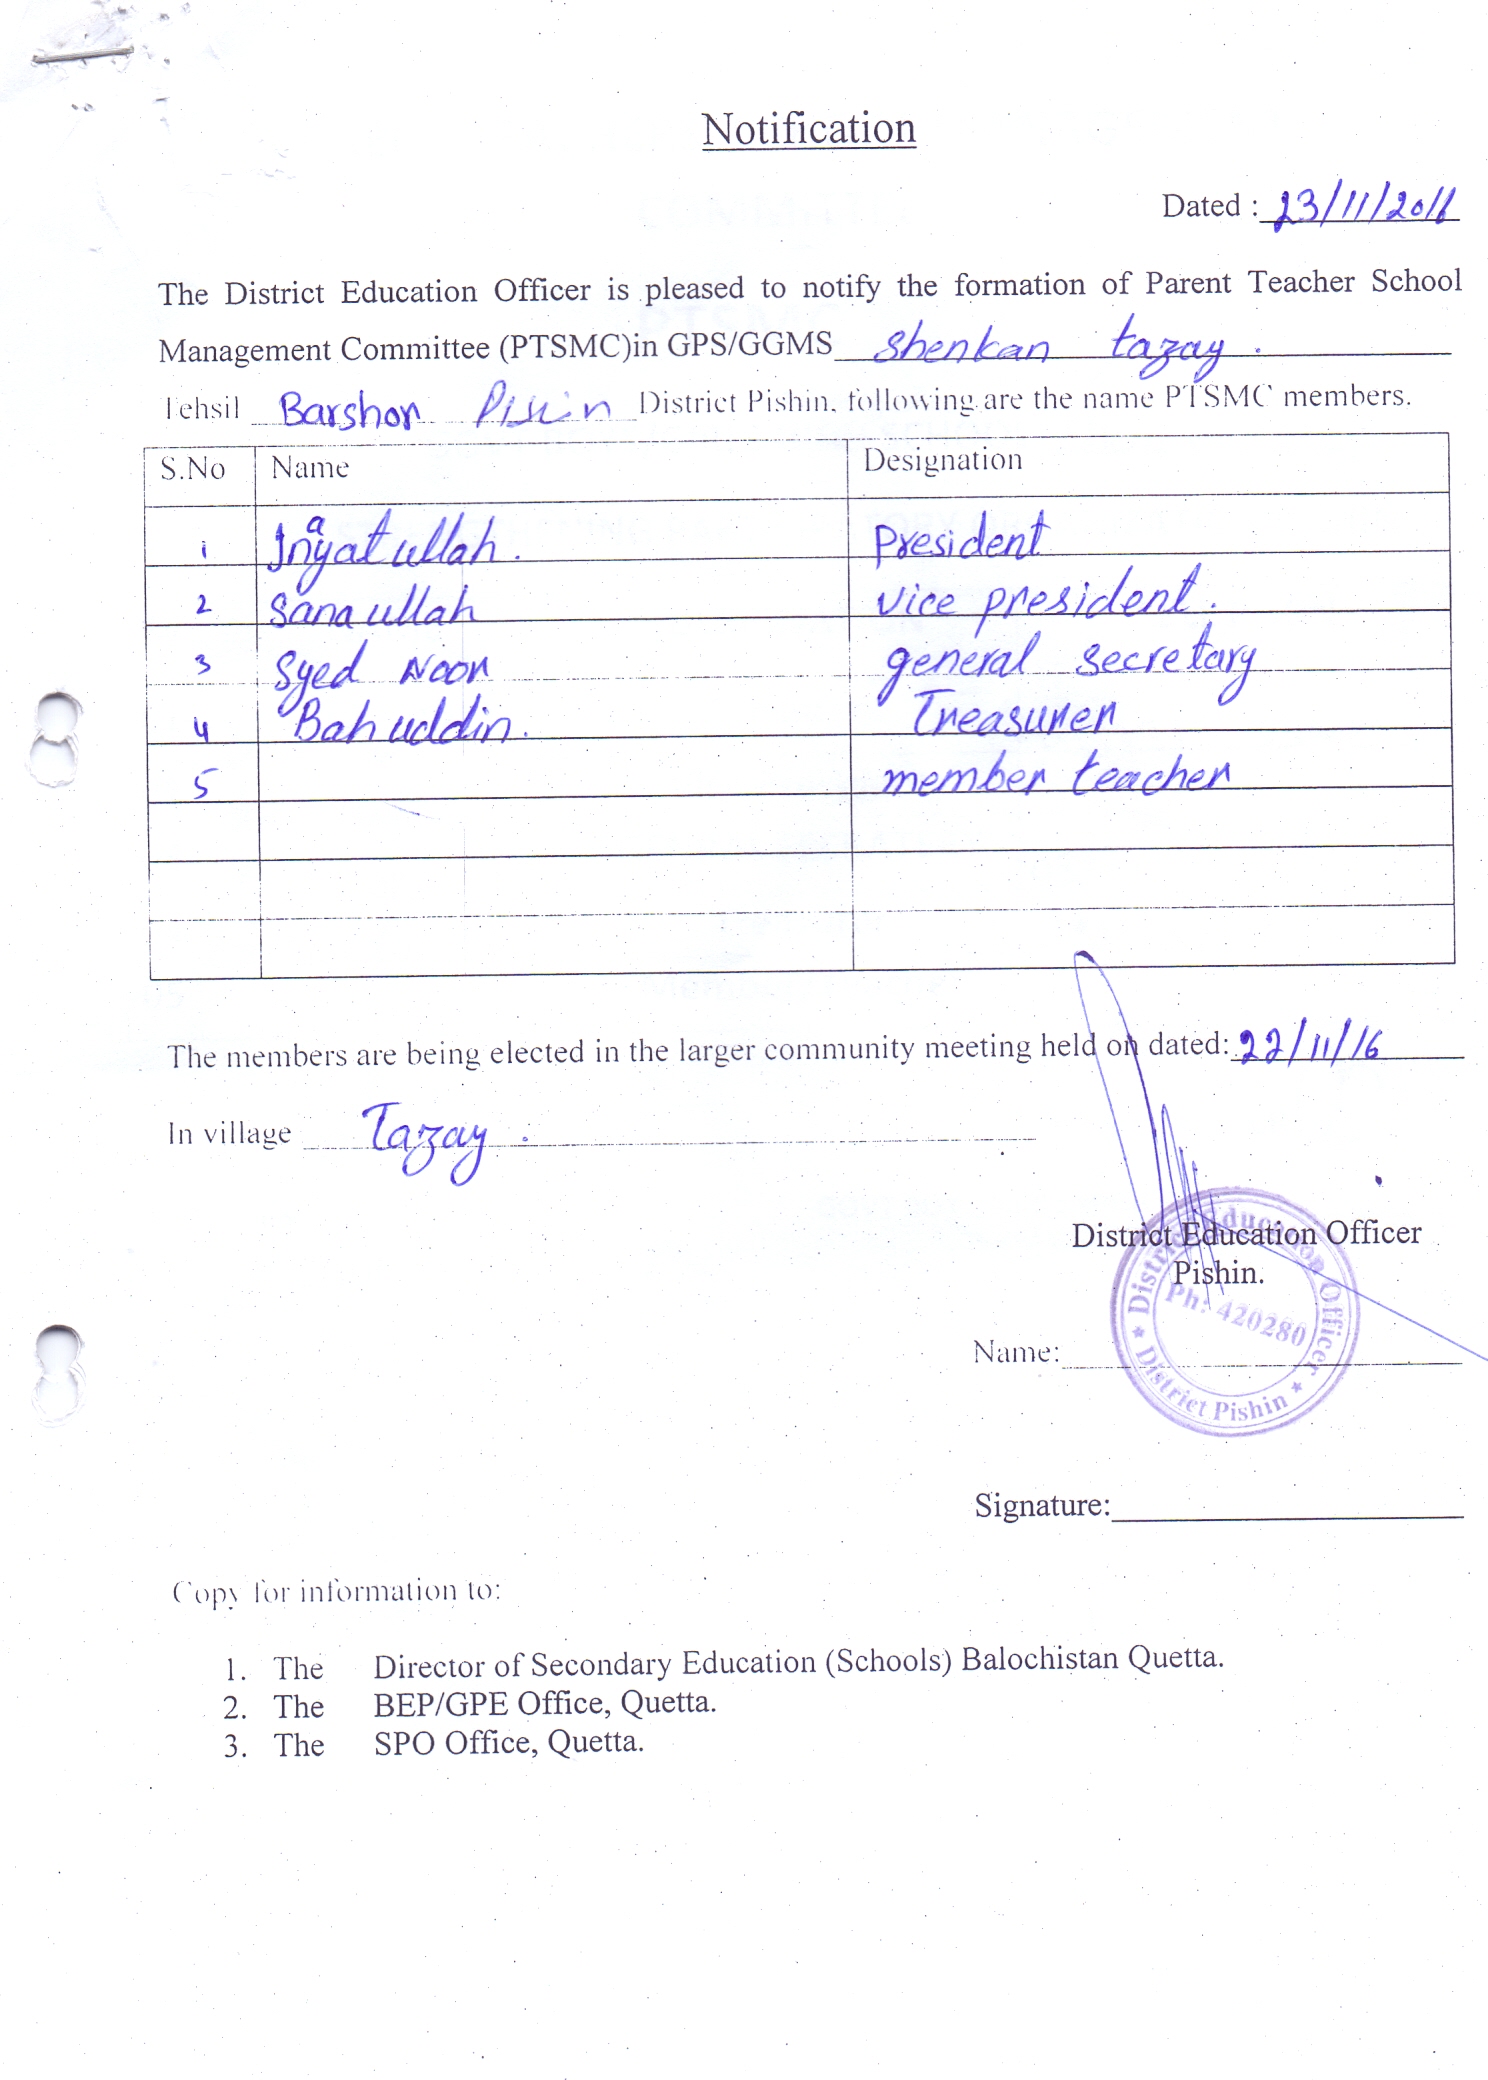 Notification
Dated : 23/11/2016
The District Education Officer is pleased to notify the formation of Parent Teacher School
Management Committee (PTSMC)in GPS/GGMS Shenkan tazay .
Tehsil Barshor Pishin District Pishin, following are the name PTSMC members.
S.No Name Designation
1 Inayatullah. President
2 Sanaullah vice president.
3 Syed Noor general secretary
4 Bahuddin. Treasurer
5 member teacher
The members are being elected in the larger community meeting held on dated: 22/11/16
In village Tazay .
District Education Officer
Pishin.
District Education Officer
Ph: 420280
District Pishin
Name:
Signature:
Copy for information to:
1. The Director of Secondary Education (Schools) Balochistan Quetta.
2. The BEP/GPE Office, Quetta.
3. The SPO Office, Quetta.